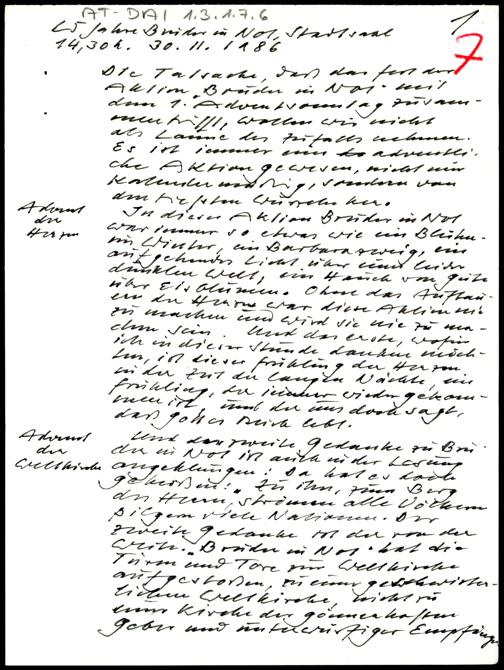 AT-DAI 1.3.1.7.6
1
7
25 Jahre Bruder in Not, Stadtsaal
14,30h. 30.11.1986
Die Tatsache, daß das Fest der
Aktion „Bruder in Not" mit
dem 1. Adventsonntag zusam-
mentrifft, wollen wir nicht
als Laune des Zufalls nehmen.
Es ist immer eine adventli-
che Aktion gewesen, nicht nur
kalendermäßig, sondern von
den tiefsten Wurzeln her.
Advent
der
Herzen
In dieser Aktion Bruder in Not
war immer so etwas wie ein Blühen
im Winter, ein Barbarazweig, ein
aufgehendes Licht über einer
dunklen Welt, ein Hauch von Güte
über Eisblumen. Ohne das Auftau-
en der Herzen war diese Aktion nie
zu machen und wird sie nie zu ma-
chen sein. Und das erste, wofür
ich in dieser Stunde danken möch-
te, ist dieser Frühling der Herzen
in der Zeit der langen Nächte, ein
Frühling, der immer wiedergekom-
men ist und der uns doch sagt,
daß Gottes Reich lebt.
Advent
der
Weltkirche
Und der zweite Gedanke zu Bru-
der in Not ist auch in der Lesung
angeklungen: Da hat es doch
geheißen: „Zu ihm, zum Berg
des Herrn, strömen alle Völker
pilgern viele Nationen. Der
zweite Gedanke ist der von der
Weite. „Bruder in Not" hat die
Türen und Tore zur Weltkirche
aufgestoßen, zu einer geschwister-
lichen Weltkirche, nicht zu
einer Kirche der gönnerhaften
Geber und unterwürfiger Empfänger